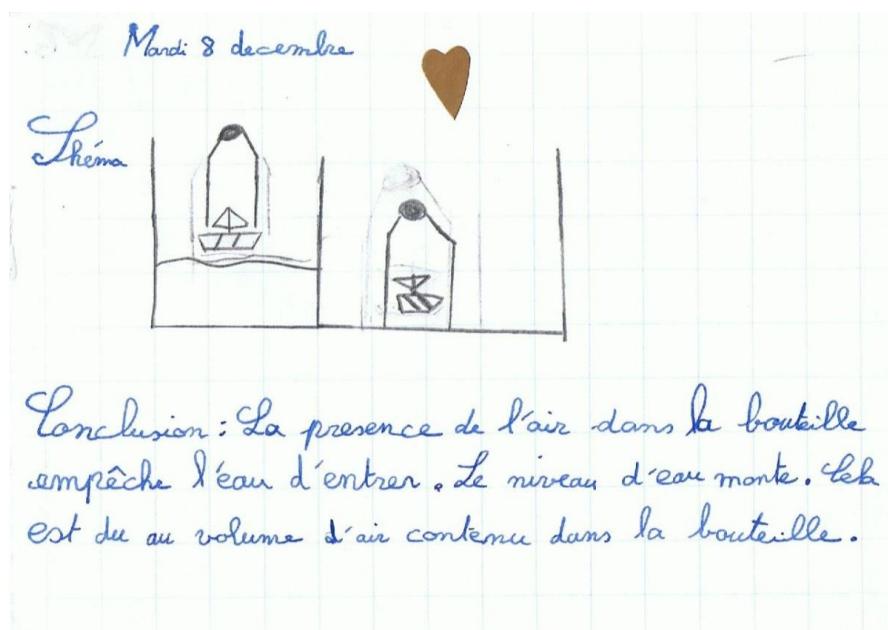 Mardi 8 decembre
Shéma
Conclusion : La presence de l'air dans la bouteille
empêche l'éau d'entrer. Le niveau d'eau monte. Cela
est du au volume d'air contenu dans la bouteille.